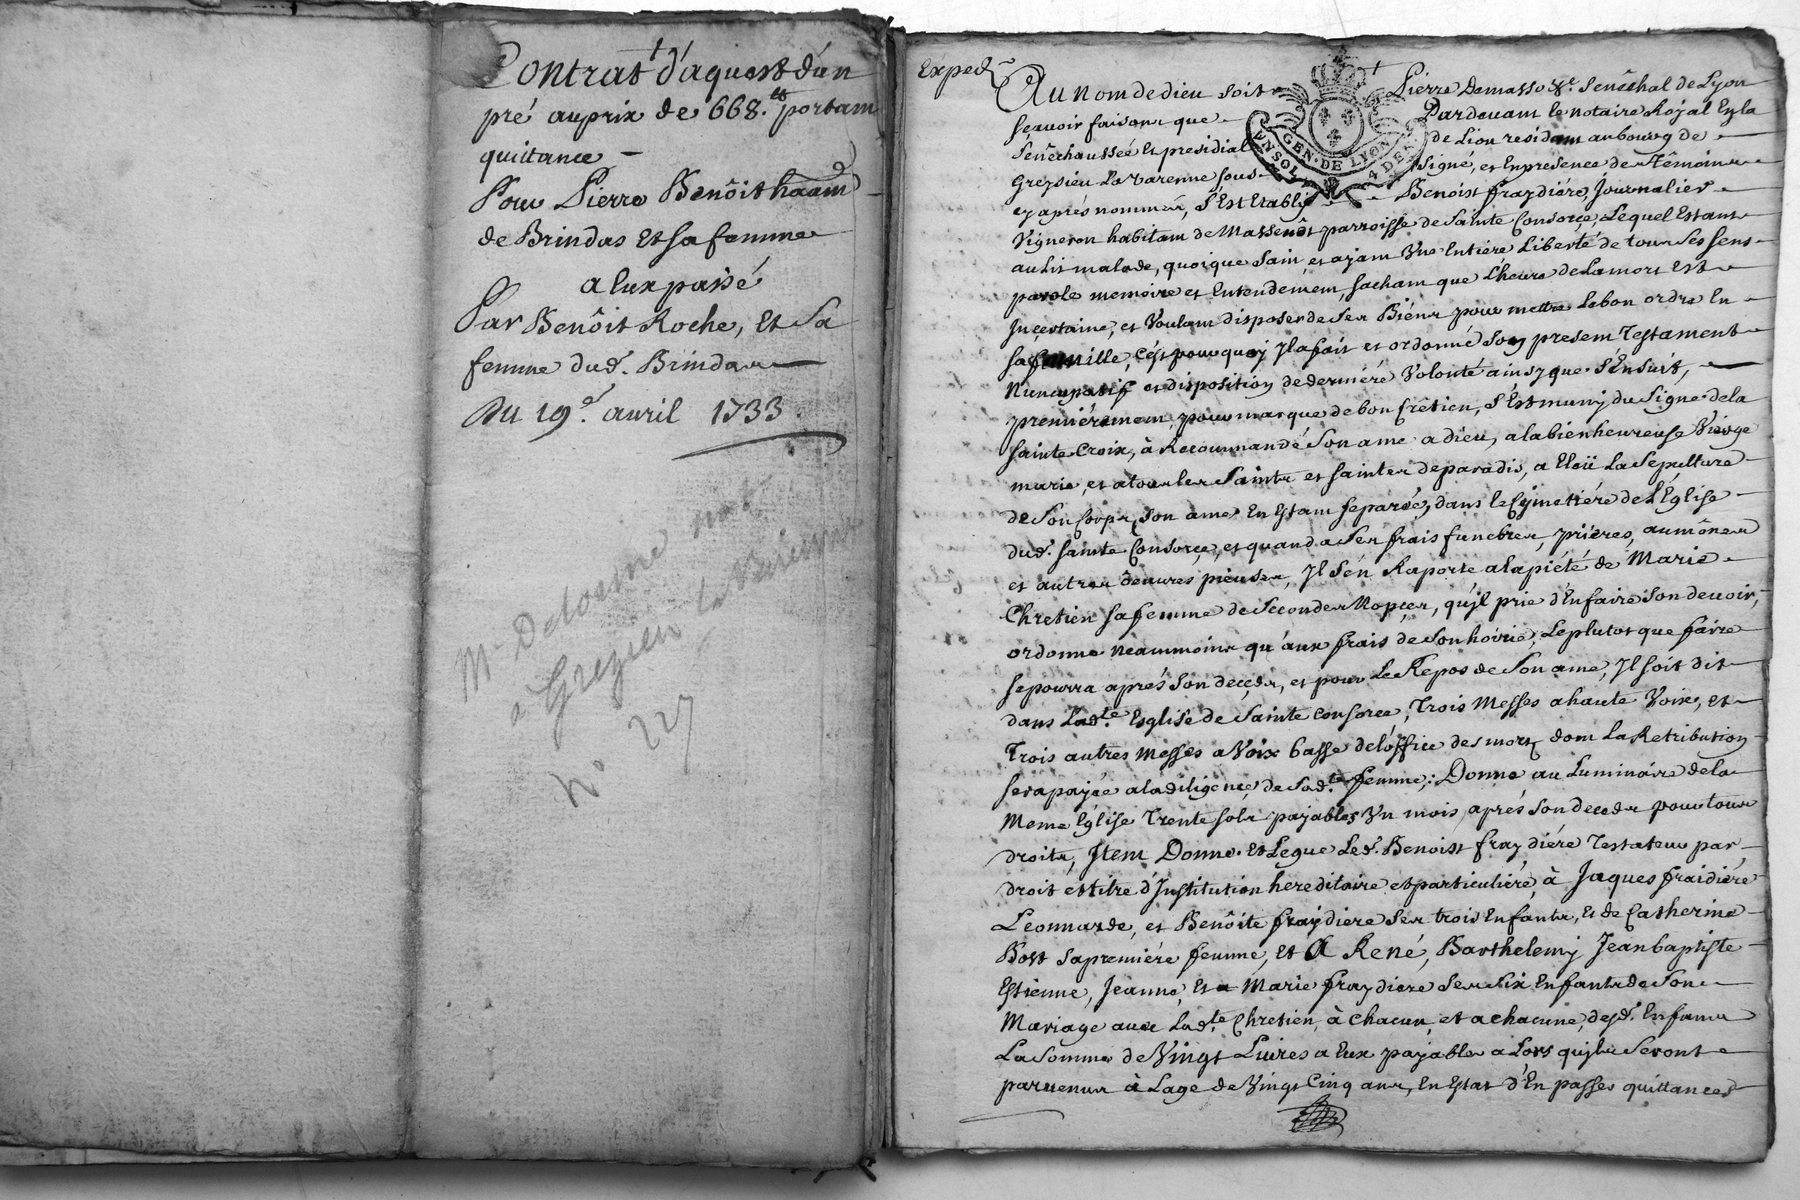 Contrat d'aquest d'un
pré au prix de 668.# portant
quittance
Pour Pierre Benoist
de Brindas et sa femme
a Eux passé
Par Benôit Roche, et sa
femme dud. Brindas
Du 19e. avril 1733
Mr Delorme not
a Grezieu la Varenne
No 227
Exped.
Au nom de dieu soit Pierre Demasso Sr. Senêchal de Lyon
scavoir faisons que Pardevant le notaire Royal En la
Senêchaussée et presidial de Lion residant au bourg de
Greysieu La Varenne sous signé, et En presence des têmoins
cy aprés nommés, s'Est Etably Benoist fraydiére, Journalier
GEN. DE LYON
4 DEN
Vigneron habitant de Massenôt parroisse de Sainte Consorçe, Lequel Estant
au lit malade, quoique sain, et ayant Vne Entiére Liberté de tous ses sens
parole memoire et Entendement, sachant que L'heure de La mort Est
Inçertaine, et Voulant disposer de ses Biéns pour mettre Le bon ordre En
sa famille, C'est pourquoy Il a fait et ordonné son present Testament
Nuncupatif et disposition de derniére Volonté ainsy que s'Ensuit,
premiérement pour marque de bon Crêtien, s'Est muny du Signe de la
sainte Croix, à Recommandé Son ame a dieu, a la bienheureuse Vierge
marie, et a tous les Saints et saintes de paradis, a Eleü La Sepulture
de son Corps, son ame En Estant separée, dans le Cymetiére de L'Église
dud. sainte Consorçe, et quand a ses frais funebres, priéres, aumônes
et autres oeuures pieuses, Il s'én Raporte a la piété de Marie
Chretien sa femme de Secondes Nopçes, qu'jl prie d'En faire son deuoir,
ordonne neanmoins qu'aux frais de son hoirie, Le plutot que faire
se pourra aprés son deçeds, et pour Le Repos de Son ame, Il soit dit
dans Lad.te Esglise de Sainte Consorce, Trois Messes a haute Voix, et
Trois autres Messes a Voix basse de l'óffice des morts dont La Retribution
sera payée a la diligençe de Sad.te femme; Donne au Luminaire de la
Meme Église Trente sols payables Vn mois aprés son deceds pour tous
droits, Item Donne et Legue Led. Benoist fraydiére Testateur par
droit et titre d'Institution hereditaire et particuliére, à Jaques fraidiére
Leonnarde, et Benôite fraydiere ses trois Enfants, Et de Catherine
Bost sa premiére femme, Et A René, Barthelemy Jean baptiste
Estienne, Jeanne, Et a Marie fraydiere ses six Enfants de Son
Mariage auec Lad.te Chretien, à chacun, et a chacune, desd. Enfants
La Somme de Vingt Liures a Eux payables a Lors qu'jls Seront
paruenus à Lage de Vingt Cinq ans, En Estat d'En passer quittances